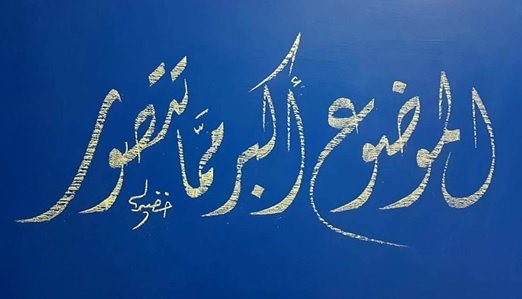 الموضوع أكبر ممَّا تتصور
خضير